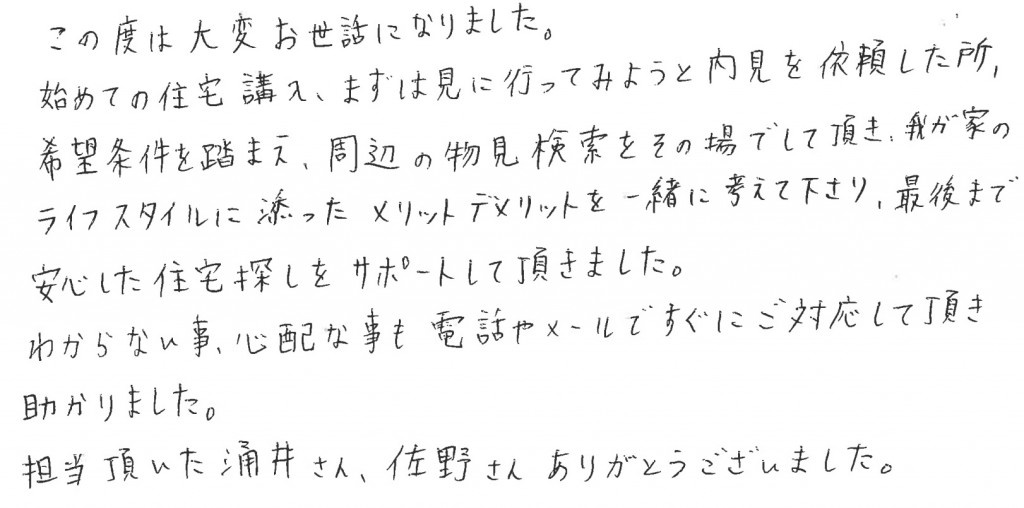 この度は大変お世話になりました。
始めての住宅講入、まずは見に行ってみようと内見を依頼した所、
希望条件を踏まえ、周辺の物見検索をその場でして頂き、我が家の
ライフスタイルに添ったメリットデメリットを一緒に考えて下さり、最後まで
安心した住宅探しをサポートして頂きました。
わからない事、心配な事も電話やメールですぐにご対応して頂き
助かりました。
担当頂いた涌井さん、佐野さんありがとうございました。